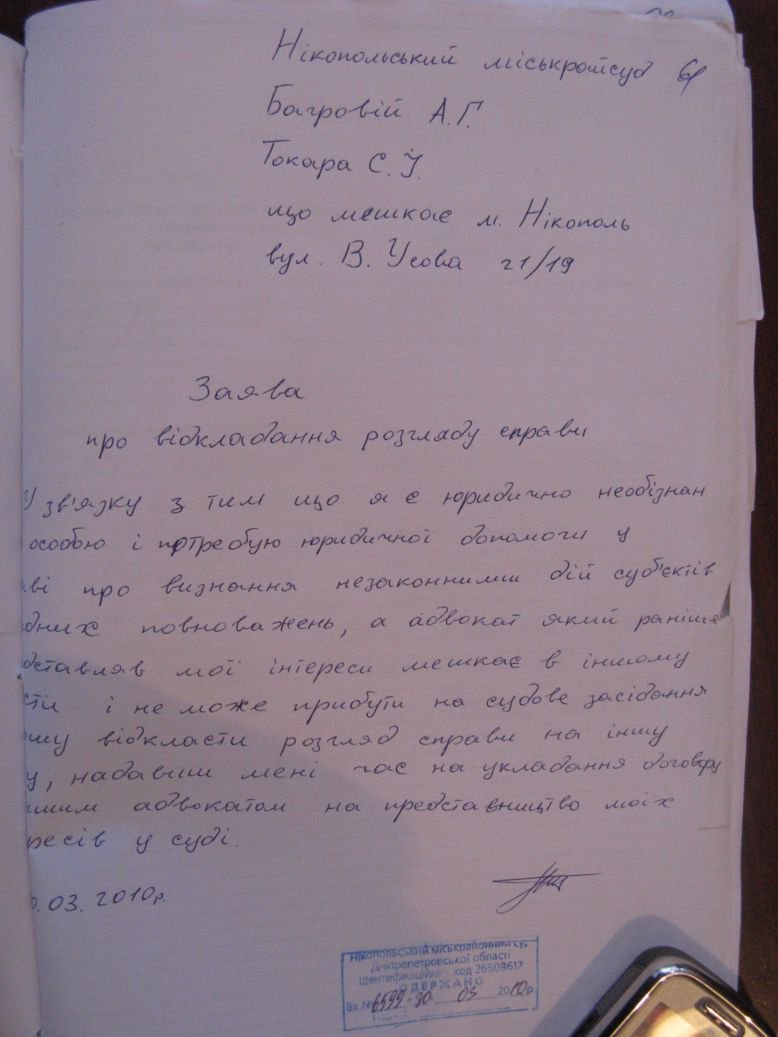 Нікопольський міськрайсуд
Багровій А.Г.
Токара С.І.
що мешкає м. Нікополь
вул. В. Усова 21/19
Заява
про відкладання розгляду справи
У зв'язку з тим що я є юридично необізнан
особою і потребую юридичної допомоги у
ві про визнання незаконними дій суб'єктів
дних повноважень, а адвокат який раніше
дставляв мої інтереси мешкає в іншому
сті і не може прибути на судове засідання
ошу відкласти розгляд справи на іншу
у, надавши мені час на укладання договору
ншим адвокатом на представництво моїх
ресів у суді.
0.03.2010р.
Нікопольський міськрайонний су
Дніпропетровської області
Ідентифікаційний код 26509617
ОДЕРЖАНО
Вх.№ 6599 30 03 2010р.